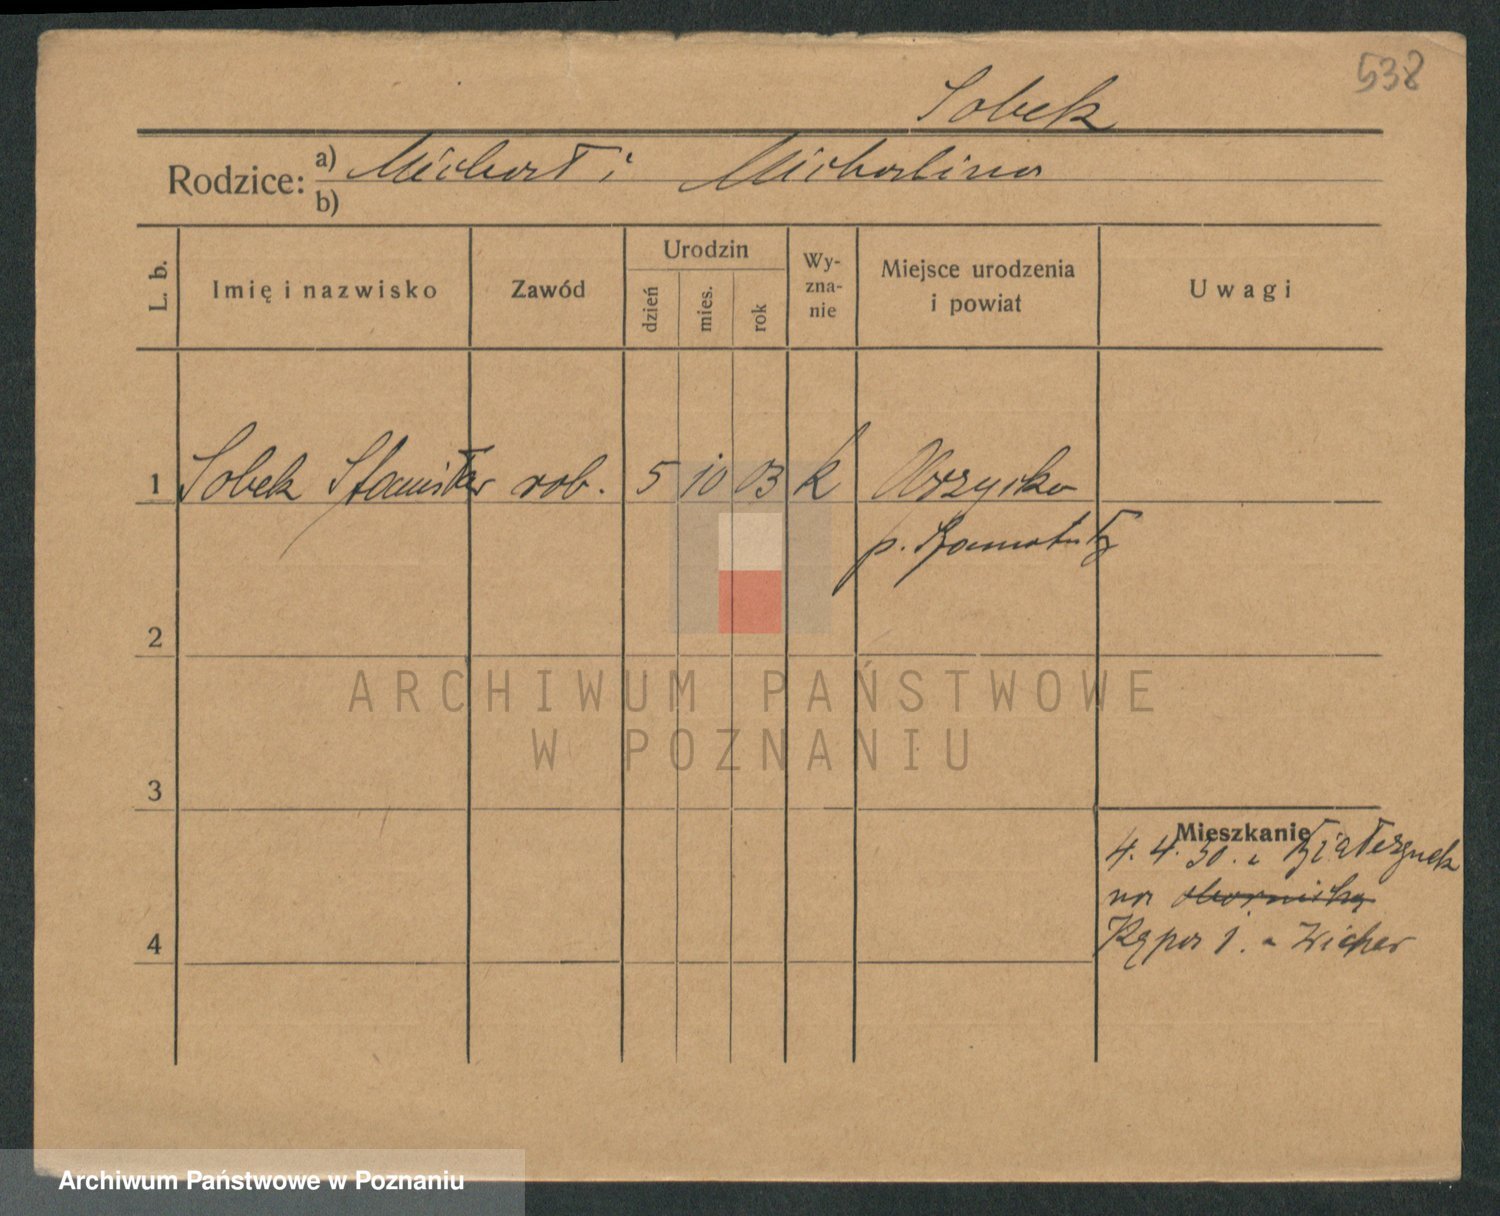 538
Sobek
Rodzice: a) Michał i Michalina
b)
L. b.
Imię i nazwisko
Zawód
Urodzin
dzień
mies.
rok
Wy-
zna-
nie
Miejsce urodzenia
i powiat
Uwagi
1 Sobek Stanisław rob. 5 10 03 k Obrzycko
p. Szamotuły
2
ARCHIWUM PAŃSTWOWE
W POZNANIU
3
Mieszkanie
4. 4. 30. z Białężynek
na obornicką
4
Kąpa 1. Wicher
Archiwum Państwowe w Poznaniu